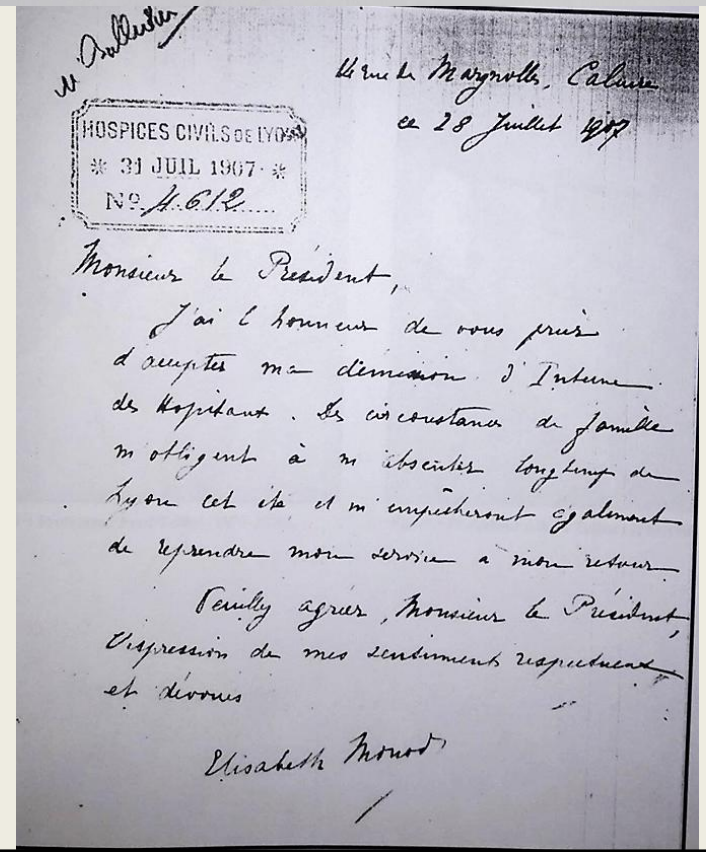 14 rue de Margnolles, Caluire
ce 28 Juillet 1907
HOSPICES CIVILS DE LYON
* 31 JUIL 1907 *
No. 4612
Monsieur le Président,
J'ai l honneur de vous prier
d'accepter ma démission d'Interne
des Hopitaux. Des circonstances de famille
m'obligent à m'absenter longtemps de
Lyon cet été et m'empêcheront également
de reprendre mon service a mon retour
Veuillez agréer, Monsieur le Président,
l'expression de mes sentiments respectueux
et dévoués
Elisabeth Monod